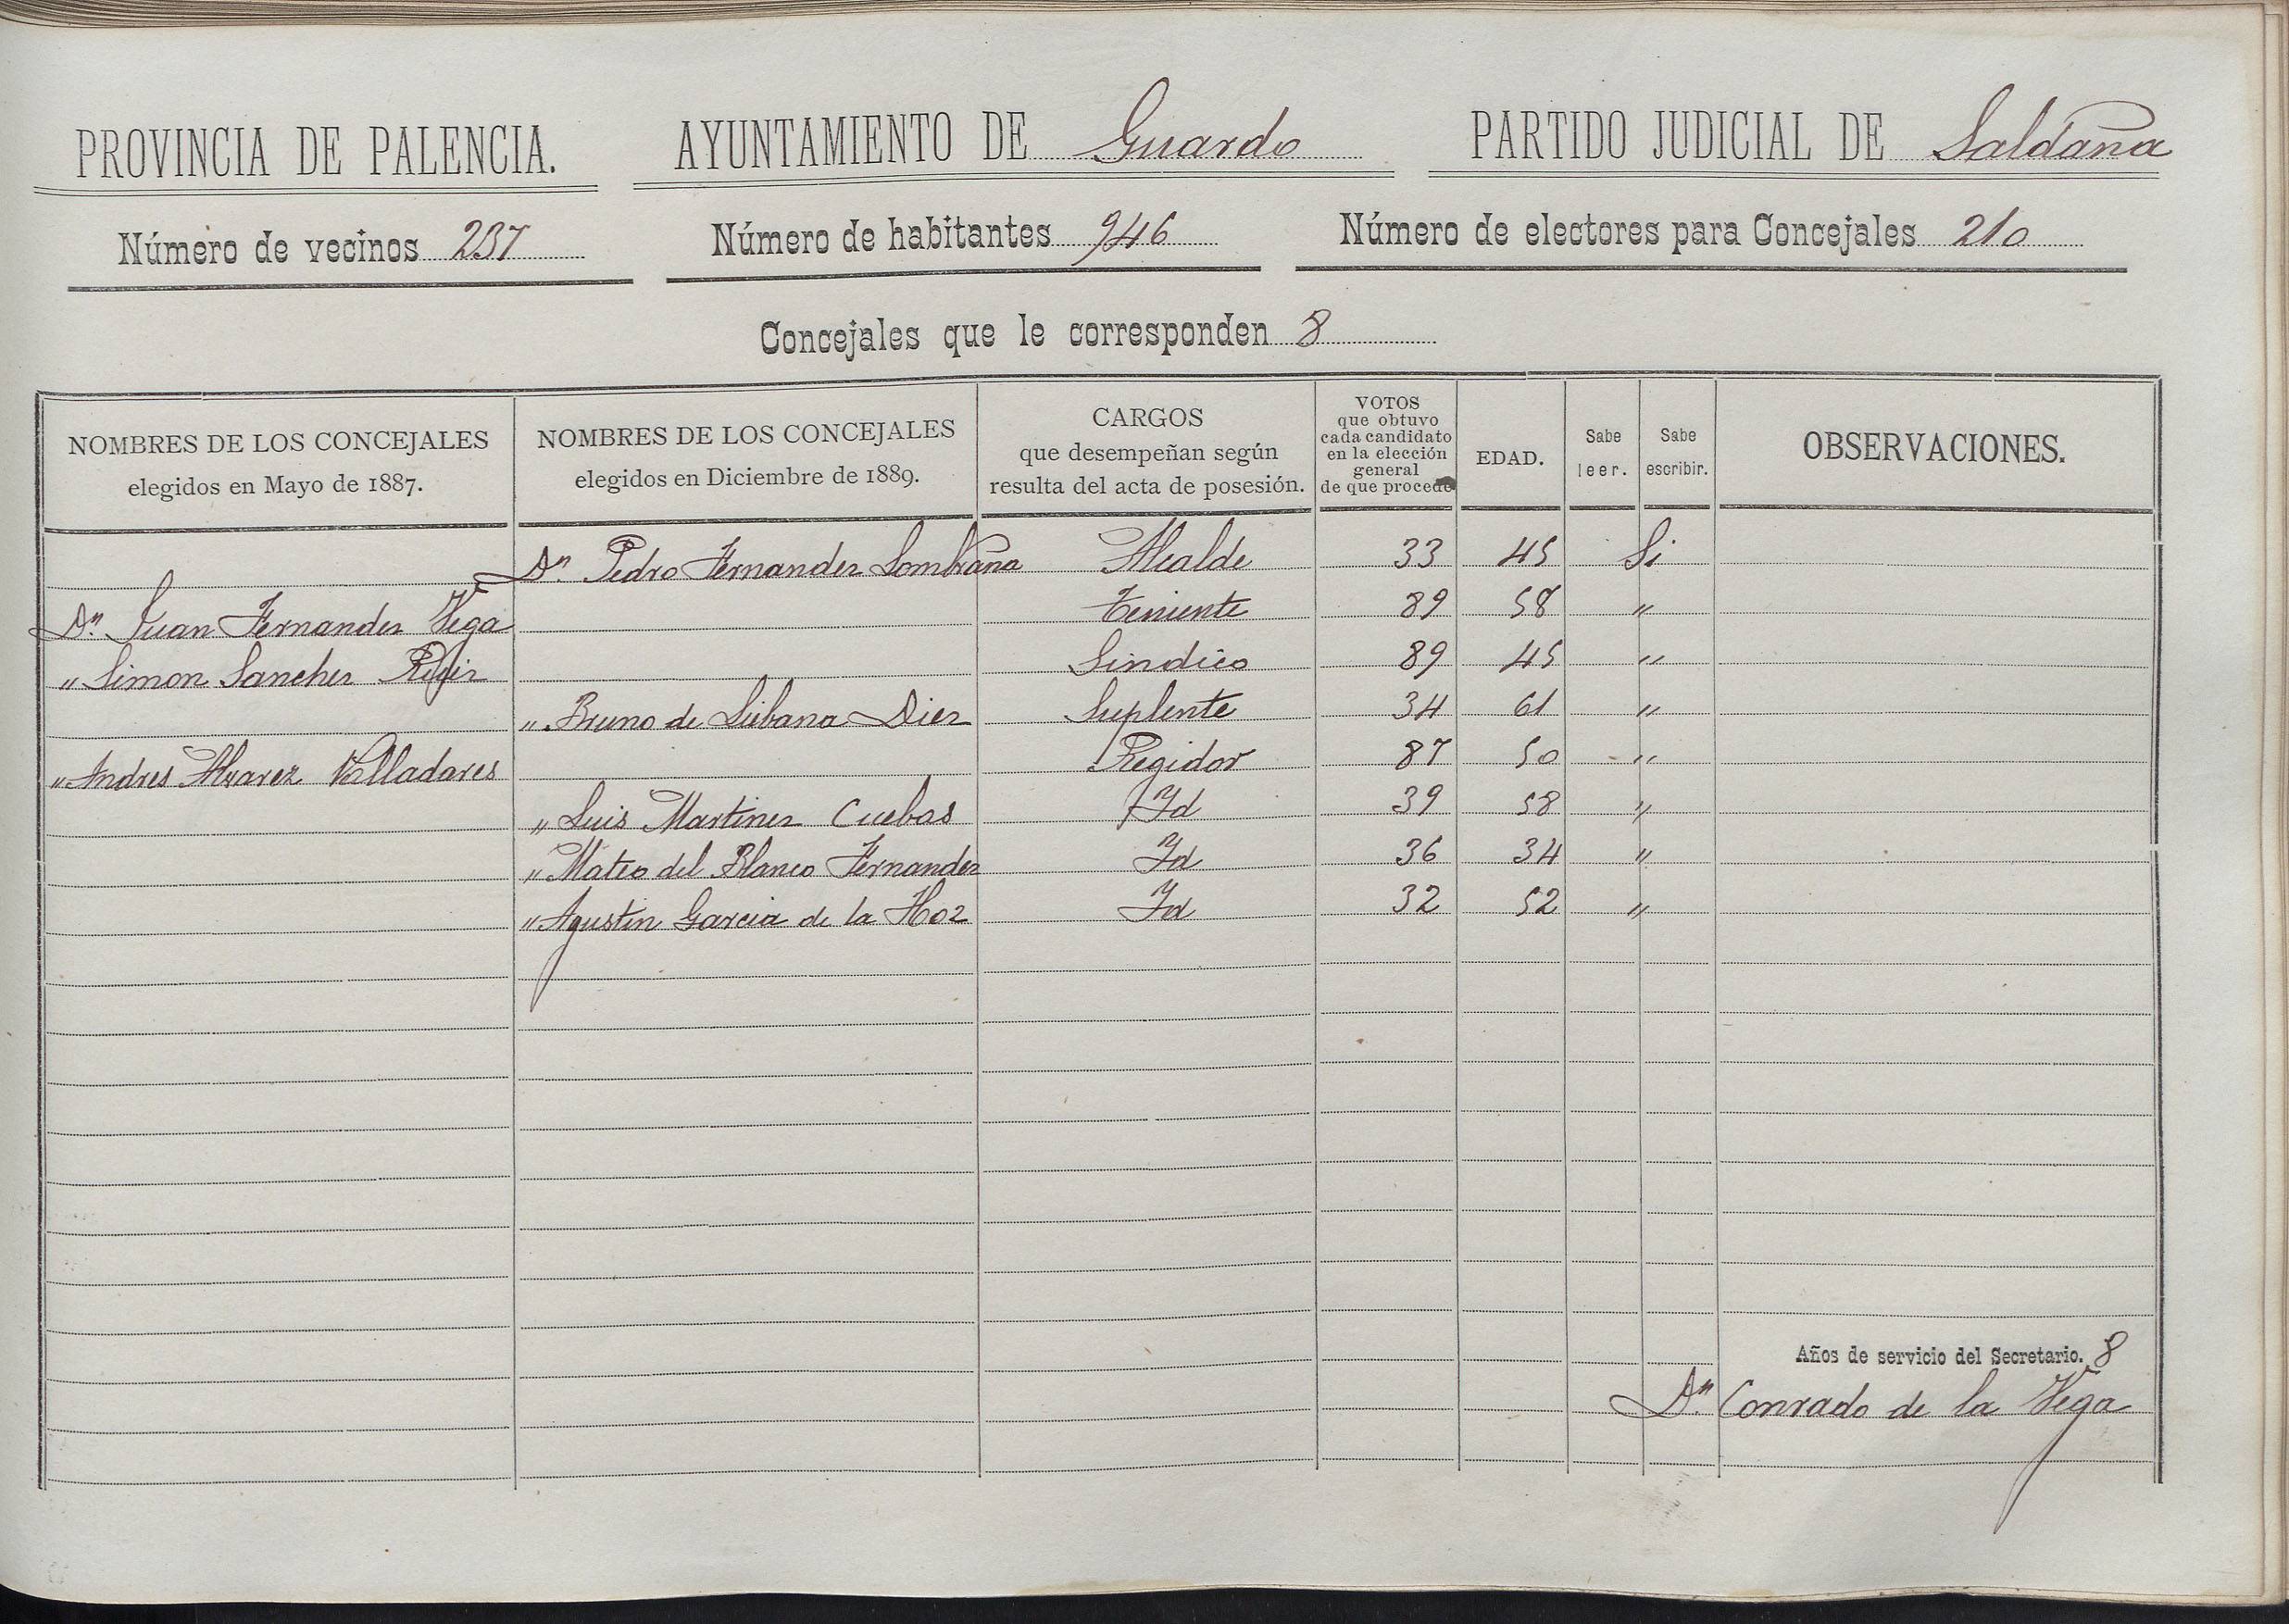 PROVINCIA DE PALENCIA. AYUNTAMIENTO DE Guardo PARTIDO JUDICIAL DE Saldaña
Número de vecinos 237 Número de habitantes 946 Número de electores para Concejales 210
Concejales que le corresponden 8
NOMBRES DE LOS CONCEJALES
elegidos en Mayo de 1887.
NOMBRES DE LOS CONCEJALES
elegidos en Diciembre de 1889.
CARGOS
que desempeñan según
resulta del acta de posesión.
VOTOS
que obtuvo
cada candidato
en la elección
general
de que procede
EDAD.
Sabe
leer.
Sabe
escribir.
OBSERVACIONES.
Dn. Pedro Fernandez Lombraña Alcalde 33 45 Si
Dn. Juan Fernandez Vega Teniente 89 58 "
" Simon Sanchez Sindico 89 45 "
" Bruno de Liébana Diez Suplente 34 61 "
" Andres Alvarez Valladares Regidor 87 50 "
" Luis Martinez Cuebas Id 39 58 "
" Mateo del Blanco Fernandez Id 36 34 "
" Agustin Garcia de la Hoz Id 32 52 "
Años de servicio del Secretario. 8
Dn. Conrado de la Vega